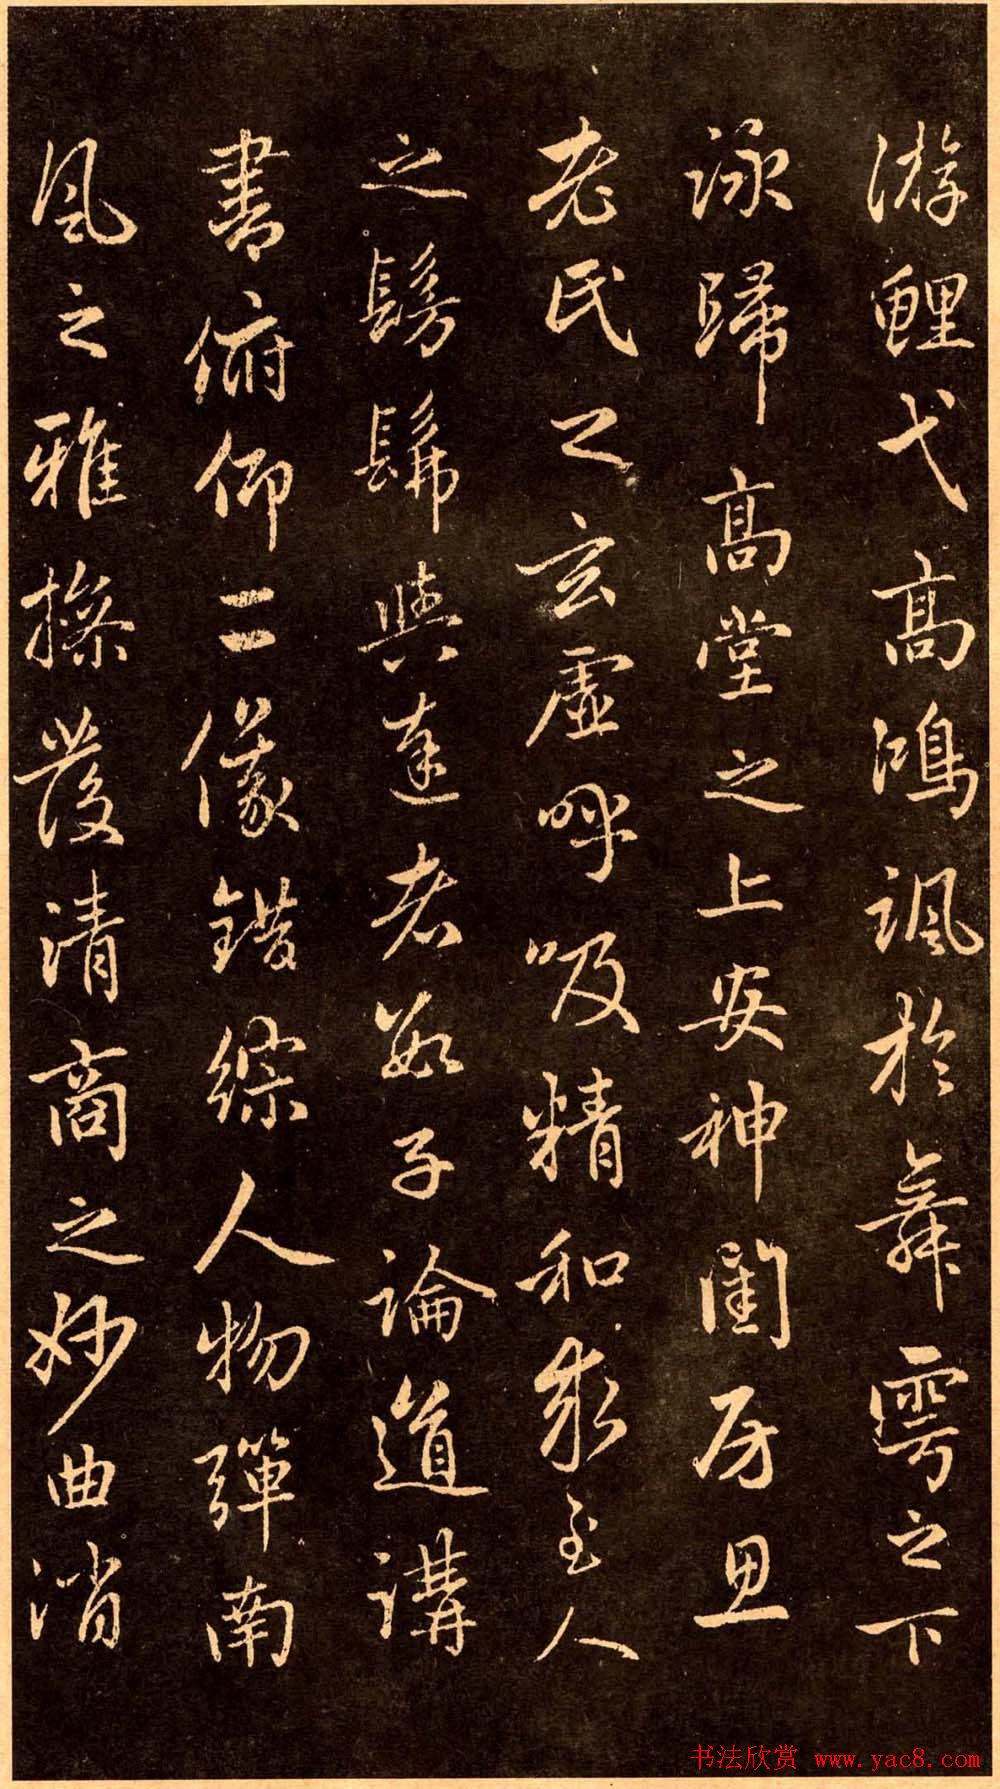 游鲤弋高鴻諷於舞雩之下
詠歸高堂之上安神閨房思
老氏之玄虛呼吸精和求至人
之髣髴與達者數子論道講
書俯仰二儀錯綜人物彈南
風之雅操發清商之妙曲消
书法欣赏 www.yac8.com